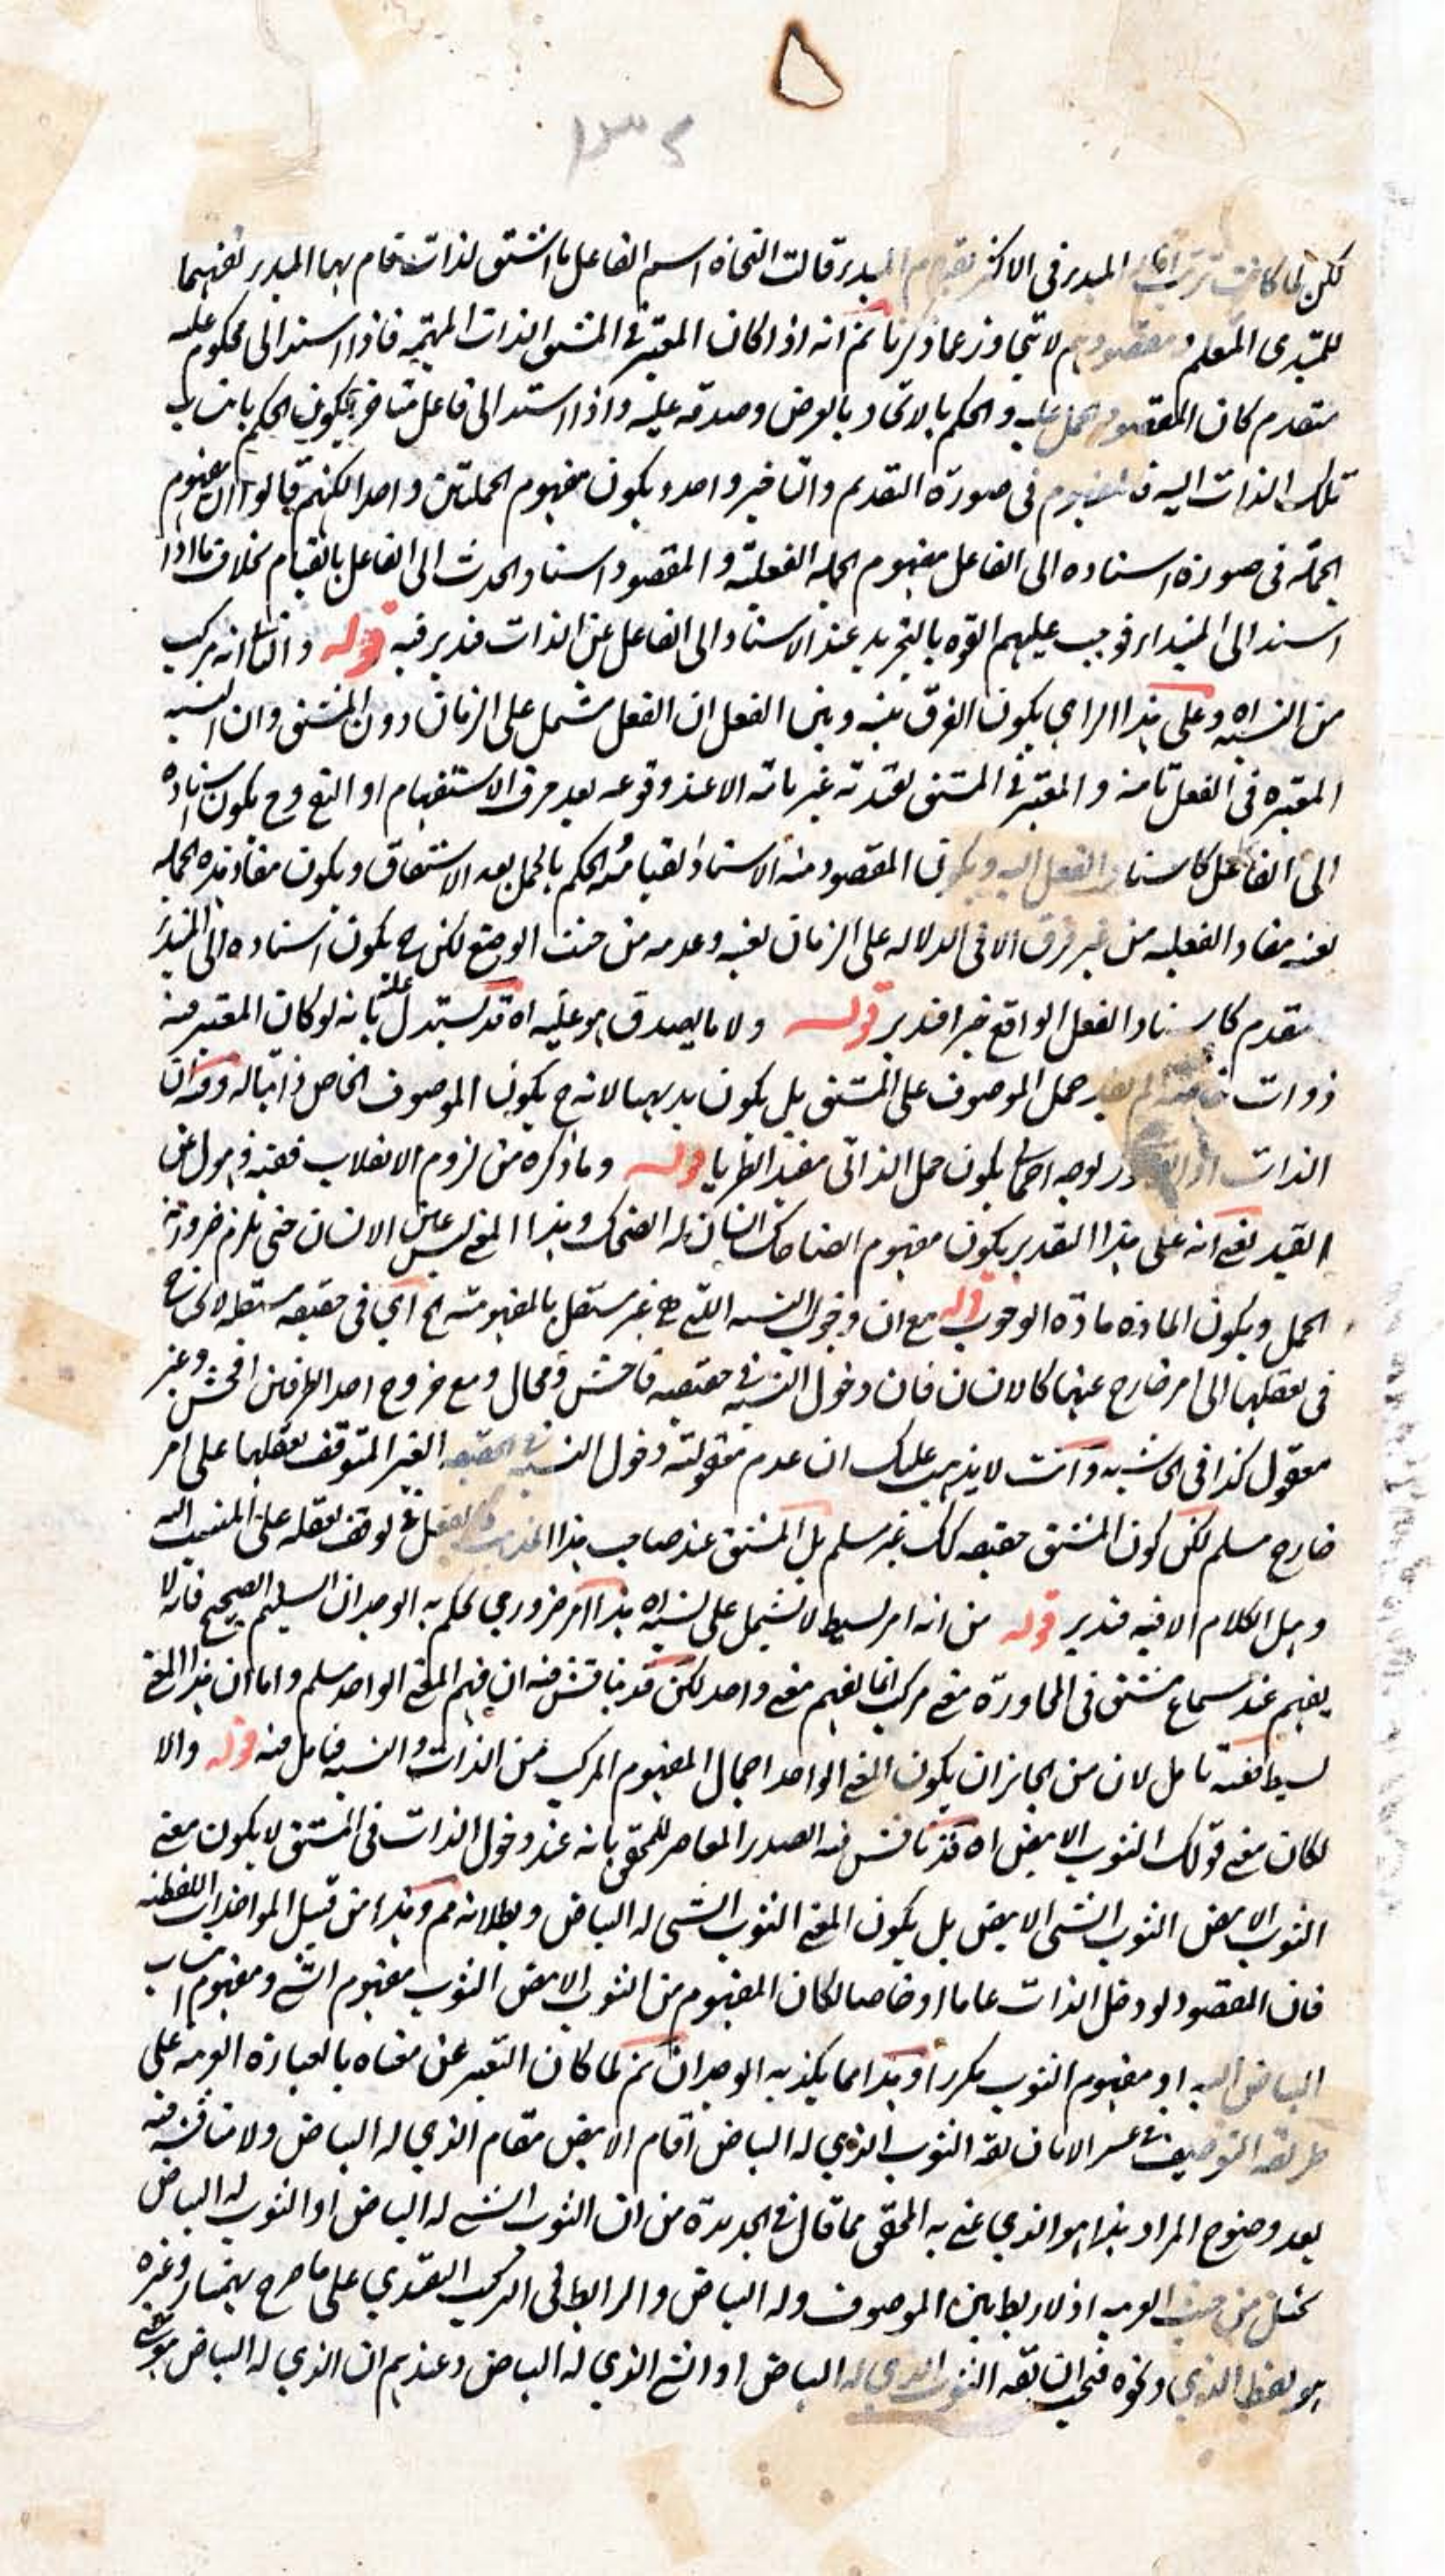 ١٣٤
لكن لما كانت ترتب آثار المبدء فى الاكثر بقيام المبدء قالت النحاة اسم الفاعل ما اشتق لذات قام بها المبدء تفهيما
للمبتدى المتعلم و مقصودهم لا يتجاوز عما ذكرنا ثم انه اذا كان المعتبر فى المشتق الذات المبهمة فاذا اسند الى محكوم عليه
متقدم كان المقصود حمل عليه و الحكم بالاتحاد بالعرض و صدقه عليه و اذا استد الى فاعل متاخر يكون الحكم بانتساب
تلك الذات اليه فالمفهوم فى صورة التقديم و التاخير واحد و يكون مفهوم الجملتين واحدا لكنهم قالوا ان مفهوم
الجملة فى صورة اسناده الى الفاعل مفهوم الجملة الفعلية و المقصود اسناد الحدث الى الفاعل بالقيام بخلاف ما اذا
اسند الى المبتداء فوجب عليهم القول بالتجريد عند الاسناد الى الفاعل عن الذات فتدبر فيه قوله و الثانى انه مركب
من النسبة اه و على هذا الراي يكون الفرق بينه و بين الفعل ان الفعل مشتمل على الزمان دون المشتق و ان النسبة
المعتبرة فى الفعل تامة و المعتبر فى المشتق تقييدية غير تامة الا عند وقوعه بعد حرف الاستفهام او النفى و ح يكون اسناده
الى الفاعل كاسناد الفعل اليه و يكون المقصود منه الاسناد القيامى ثم الحكم بالحمل بعد الاشتقاق و يكون مفاد هذه الجملة
بعينه مفاد الفعلية من غير فرق الا فى الدلالة على الزمان بعينه و عدمه من حيث الوضع لكن ح يكون اسناده الى المبتدء
مقدم كاسناد الفعل الواقع خبرا فتدبر قوله و لا ما يصدق هو عليه اه قد يستدل عليه بانه لو كان المعتبر فيه
ذوات خاصة لم يفد حمل الموصوف على المشتق بل يكون بديهيا لانه ح يكون الموصوف الخاص ذاتيا له و فيه ان
الذات اذا لوجه اجمالى يكون حمل الذاتى مفيدا نظريا قوله و ما ذكره من لزوم الانقلاب ففيه ذهول عن
القيد يعنى انه على هذا التقدير يكون مفهوم الضاحك انسان له الضحك و هذا المعنى ليس عين الانسان حتى يلزم ضرورة
الحمل و يكون المادة مادة الوجوب قوله مع ان دخول النسبة التى هى غير مستقل بالمفهومية الخ اي فى حقيقة مستقلة لا تحتاج
فى تعقلها الى امر خارج عنها كالانسان فان دخول النسبة فى حقيقته فاحش و محال و مع خروج احد الطرفين افحش و غير
معقول كذا فى الحاشية و انت لا يذهب عليك ان عدم معقولية دخول النسبة فى الحقيقة الغير المتوقف تعقلها على امر
خارج مسلم لكن كون المشتق حقيقة كك غير مسلم بل المشتق عند صاحب هذا المذهب كالفعل فى توقف تعقله على المنتسب اليه
و هل الكلام الا فيه فتدبر قوله من انه امر بسيط لا يشتمل على نسبة اه هذا امر ضروري يحكم به الوجدان السليم الصحيح فانه لا
يفهم عند سماع مشتق فى المحاورة معنى مركب انما يفهم معنى واحد لكن قد يناقش فيه ان فهم المعنى الواحد مسلم و اما ان هذا المعنى
بسيط ففيه تامل لان من الجائز ان يكون المعنى الواحد اجمال المفهوم المركب من الذات و النسبة فتامل فيه قوله و الا
لكان معنى قولك الثوب الابيض اه قد ناقش فيه الصدر المعاصر للمحقق بانه عند دخول الذات فى المشتق لا يكون معنى
الثوب الابيض الثوب الشى الابيض بل يكون المعنى الثوب الشى له البياض و بطلانه مم و هذا من قبيل المواخذات اللفظية
فان المقصود لو دخل الذات عاما او خاصا لكان المفهوم من الثوب الابيض الثوب مفهوم الشى و مفهوم انتساب
البياض اليه او مفهوم الثوب مكررا و هذا مما يكذبه الوجدان ثم لما كان التعبير عن معناه بالعبارة العربية على
طريقة التوصيف عسر الا بان يقه الثوب الذي له البياض اقام الابيض مقام الذي له البياض و لا مناقشة فيه
بعد وضوح المراد هذا هو الذي عنى به المحقق مما قال فى الجديدة من ان الثوب الشى له البياض او الثوب له البياض
مختل من حيث العربية اذ لا ربط بين الموصوف و له البياض و الرابط فى التركيب التقييدي على ما صرح بهمنيار و غيره
هو لفظ الذي و نحوه فيجب ان يقه الثوب الذي له البياض او الشى الذي له البياض و عندهم ان الذي له البياض هو معنى